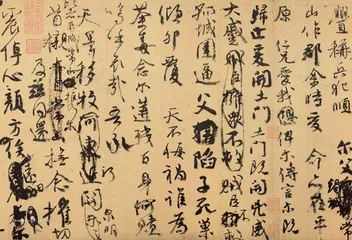 釁稱兵犯順
山作郡余時受命亦在平
原仁兄愛我俾爾傳言爾既
歸止爰開土門土門既開凶威
大蹙賊臣擁眾不救賊臣不
孤城圍逼父陷子死巢
傾卵覆天不悔禍誰為
荼毒念爾遘殘百身何贖
嗚呼哀哉吾承
天澤移牧河關泉明
首櫬及茲同還撫念摧切
震悼心顏方俟